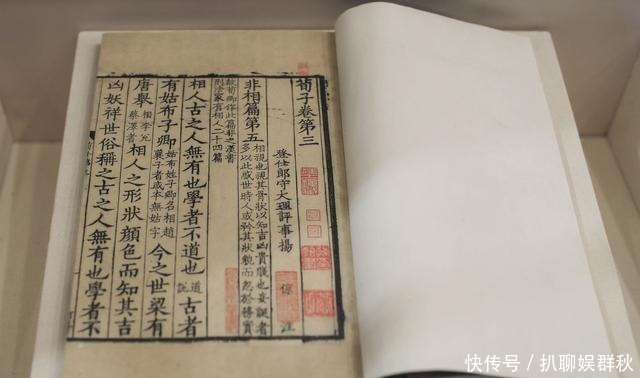 荀子卷第三
登仕郎守大理評事楊 倞 注
非相篇第五
相視也視其骨狀以知吉凶貴賤也妄誕者
多以此惑世時人或矜其狀貌而忽於務實
故荀卿作此篇非之漢書
刑法家有相人二十四篇
相人古之人無有也學者不道也 道說 古者
有姑布子卿 姑布姓子卿名相趙襄子者或本無姑字 今之世梁有
唐舉 相李兌蔡澤者 相人之形狀顏色而知其吉
凶妖祥世俗稱之古之人無有也學者不
快传号 / 扒聊娱群秋